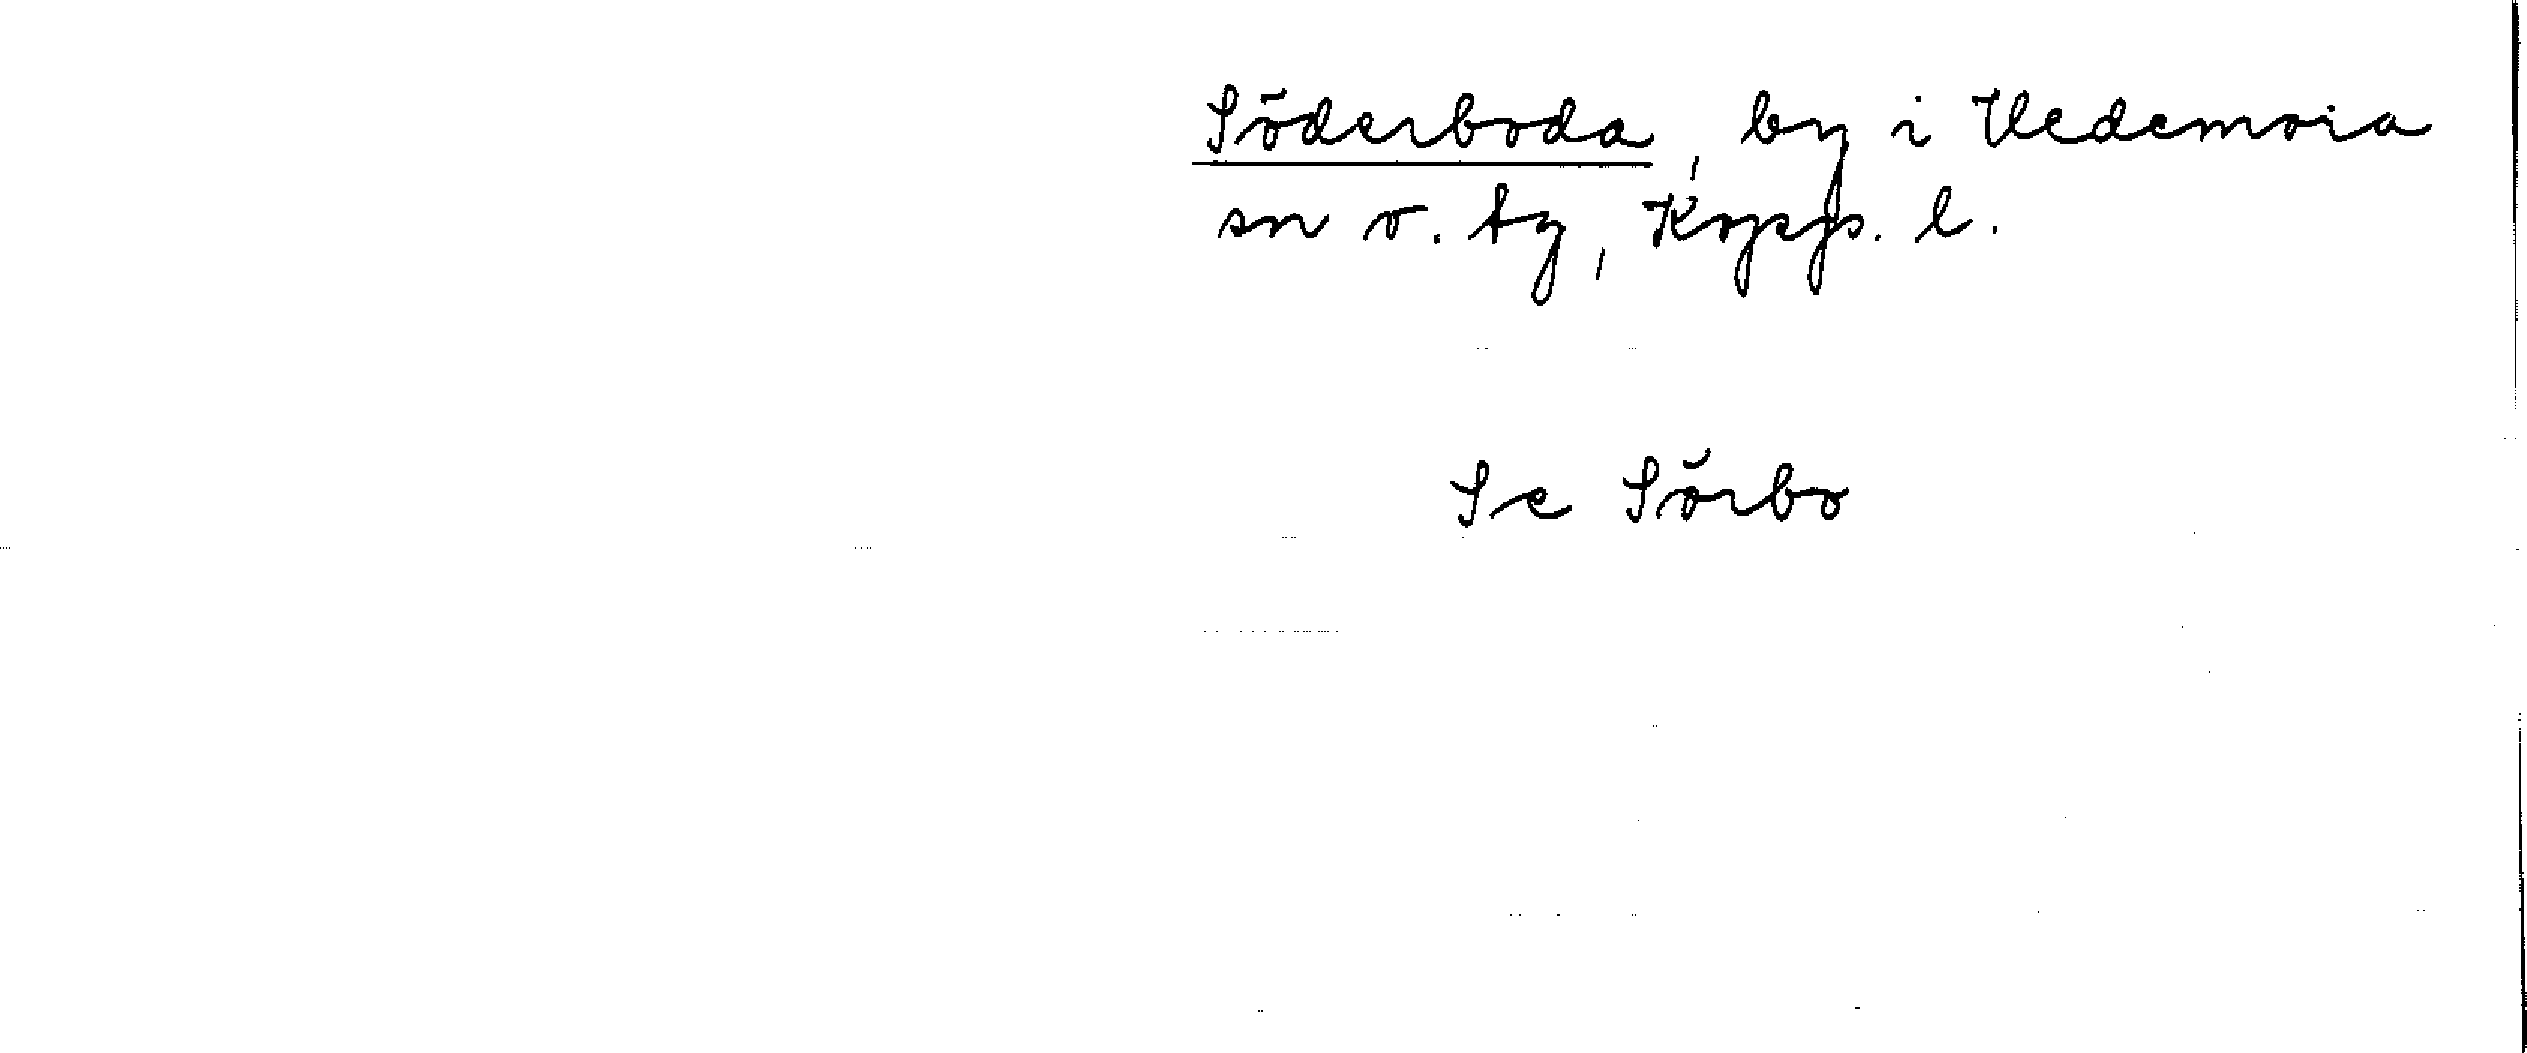 Söderboda, by i Hedemora
sn o. tg, Kopp. l.
Se Sörbo